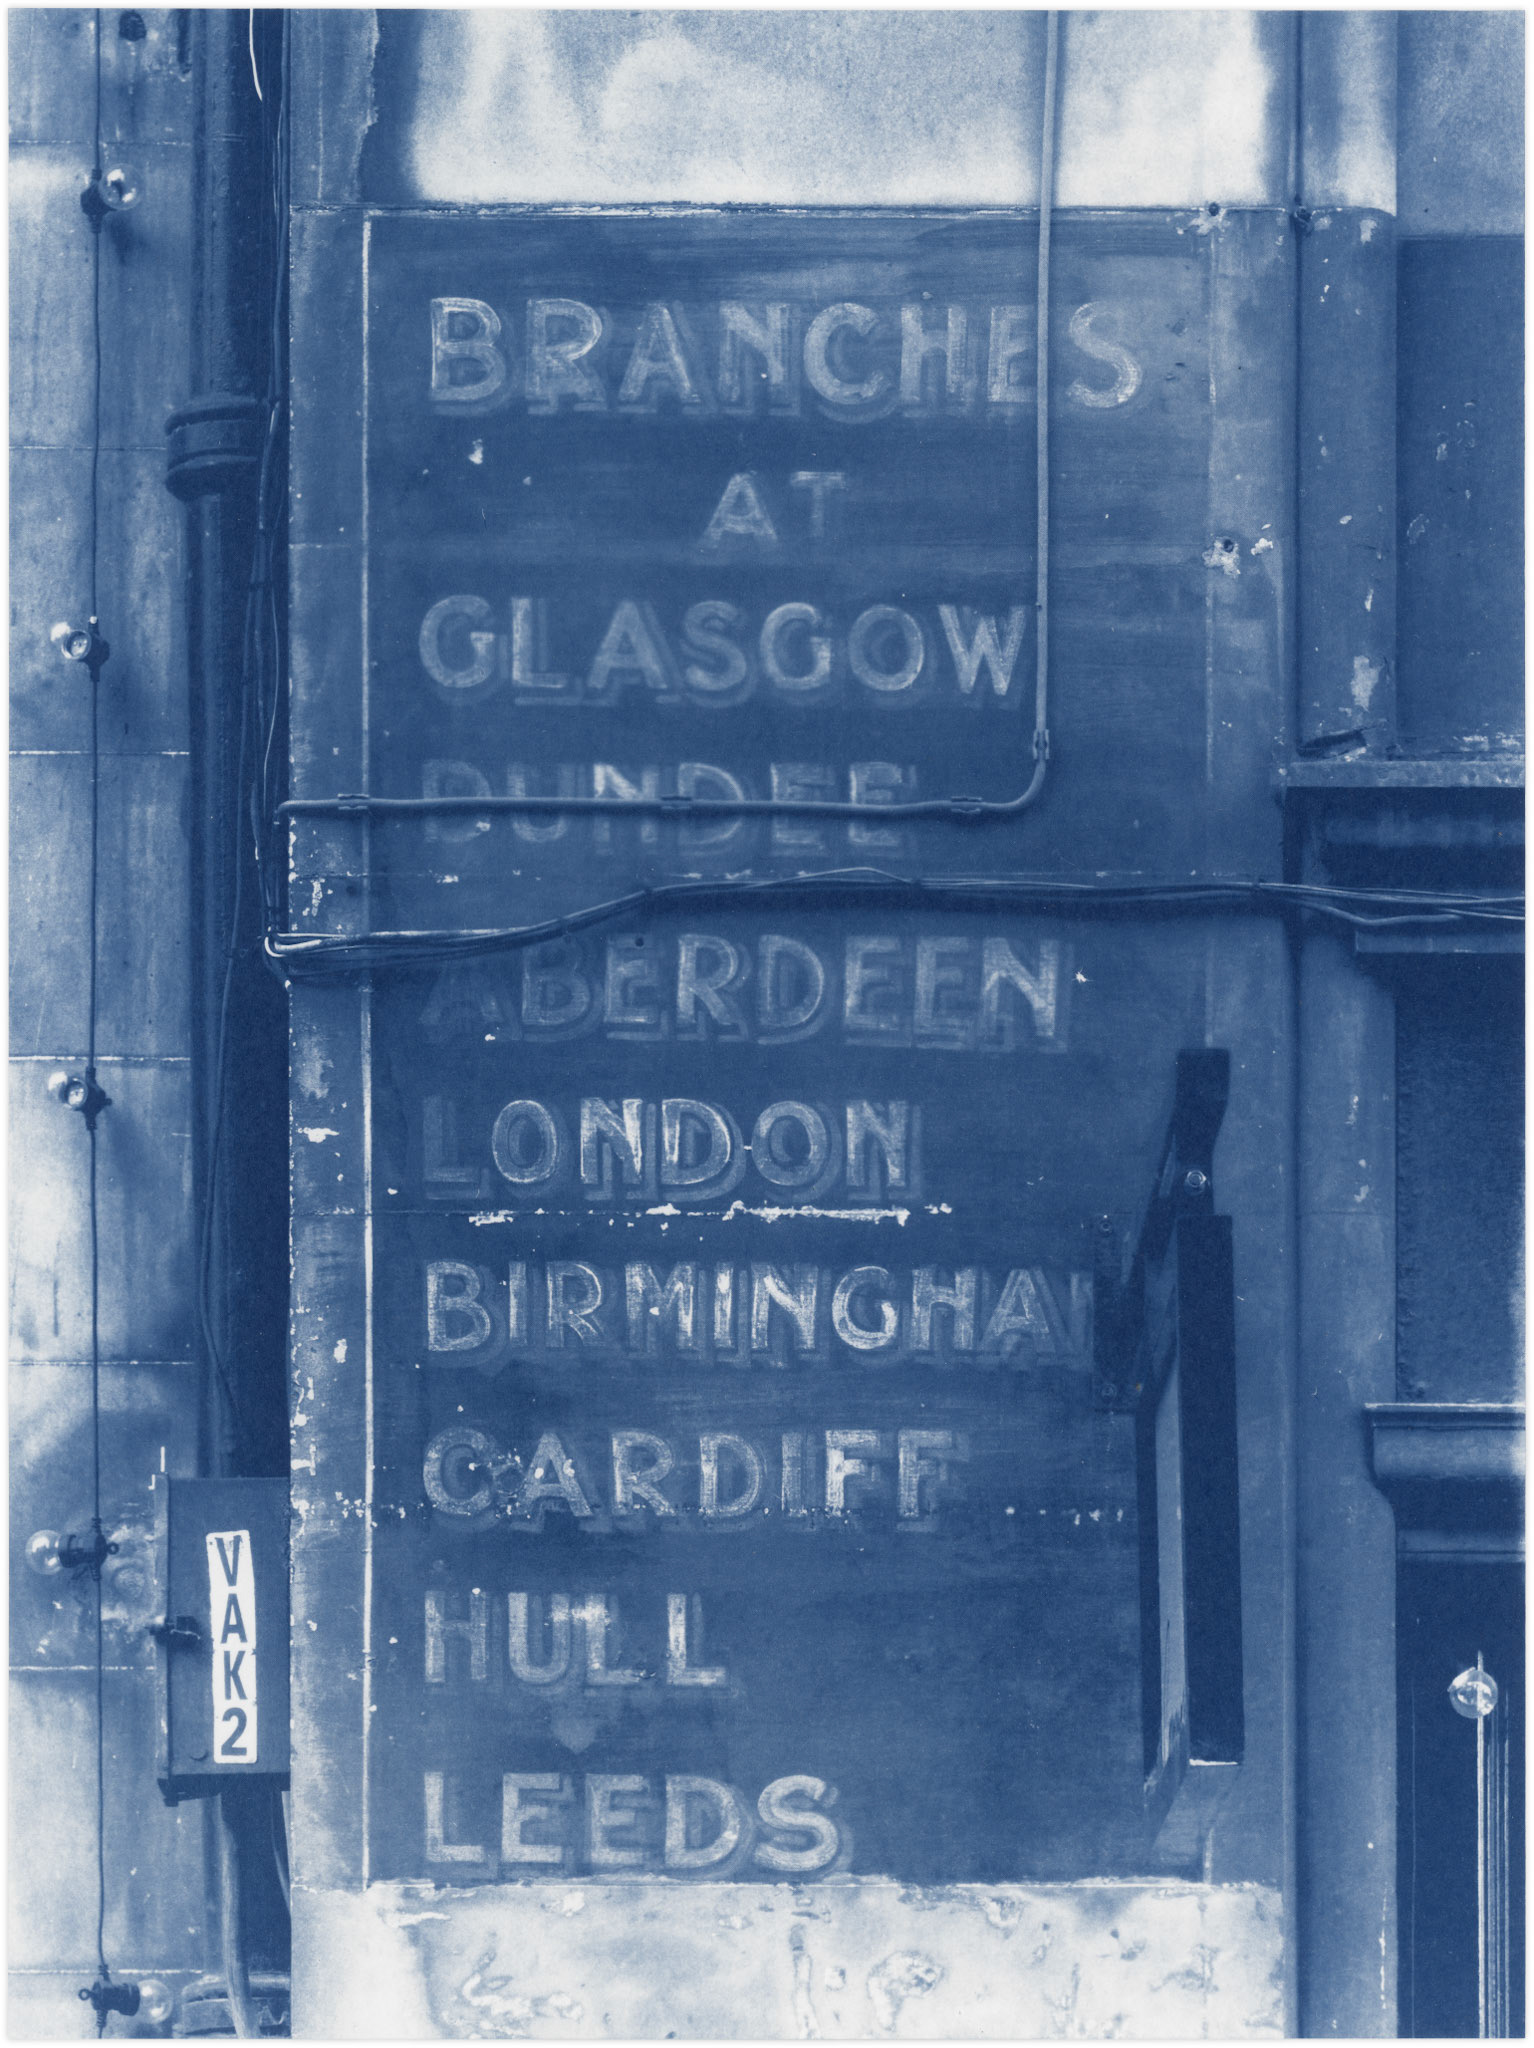 BRANCHES
AT
GLASGOW
DUNDEE
ABERDEEN
LONDON
BIRMINGHA
CARDIFF
HULL
LEEDS
VAK2